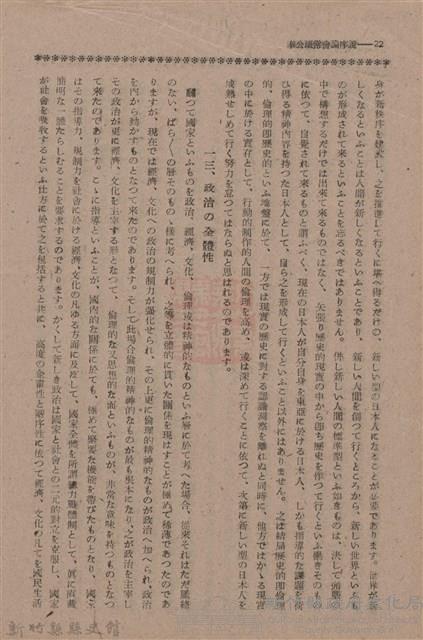 奉公運常會論序説——22
身が新秩序を建設し、之を推進して行くに堪へ得るだけの、新しい型の日本人になることが必要であります。世界が新
しくなるといふことは人間が新しくなるといふことであり、新しい人間を創つて行くところから、新しい世界といふも
のが形成されて來るといふことを忘るべきではありません。併し新しい人間の標準型といふ如きものは、決して頭腦の
中で構想するだけでは出來て來るものではなく、矢張り歴史的現實の中から即ち歴史を作つて行くといふ働きそのもの
に依つて、自覺されて來るものと謂ふべく、現在の日本人が自分自身を東亞に於ける日本人、しかも指導的な課題を荷
ひ得る精神內容を持つた日本人として、自ら之を形成して行くといふこと以外にはありません。之は結局歴史的即倫理
的、倫理的即歴史的といふ地盤に於て、一方では現實の歴史に對する認識洞察を離れぬと同時に、他方ではかゝる現實
の中に於ける實存として、行動的制作的人間の倫理を高め、或は深めて行くことに依つて、次第に新しい型の日本人を
成熟せしめて行く努力を怠つてはならぬと思はれるのであります。
一三、政治の全體性
飜つて國家といふものを政治、經濟、文化、倫理或は精神的なものといふ層に於て考へた場合、從來それはただ羅緒
のない、ばら〱の層そのもの、樣に考へられ、之等を立體的に貫いた關係を現はすことが極めて稀薄であつたのであ
りますが、現在では經濟、文化への政治の規制力が強化せられ、その上更に倫理的精神的なものが政治へ加へられ、政治
を內から動かすものとなつて來たのであります。そして此場合倫理的精神的なものが最も根本になり、之が政治を主宰し
その政治が更に經濟、文化を主宰する形となつて、倫理的な又思想的な面といふものが、非常な意味を持つものとなつ
て來たのであります。こゝに指導といふことが、國內的な關係に於ても、極めて緊要な機能を帶びたものとなり、國家
はその指導力、規制力を社會に於ける經濟文化の凡ゆる方面に及ぼして、國家全體を所謂總力戰體制として、眞に直截
簡明な一體たらしむることを要求するのであります。かくして新しき政治は國家と社會との二元的對立を克服し、國家
が社會を吸收するといふ仕方に於て之を包括すると共に、高度の企畫性と秩序性に依つて經濟、文化の凡てを國民生活
新竹縣縣史館